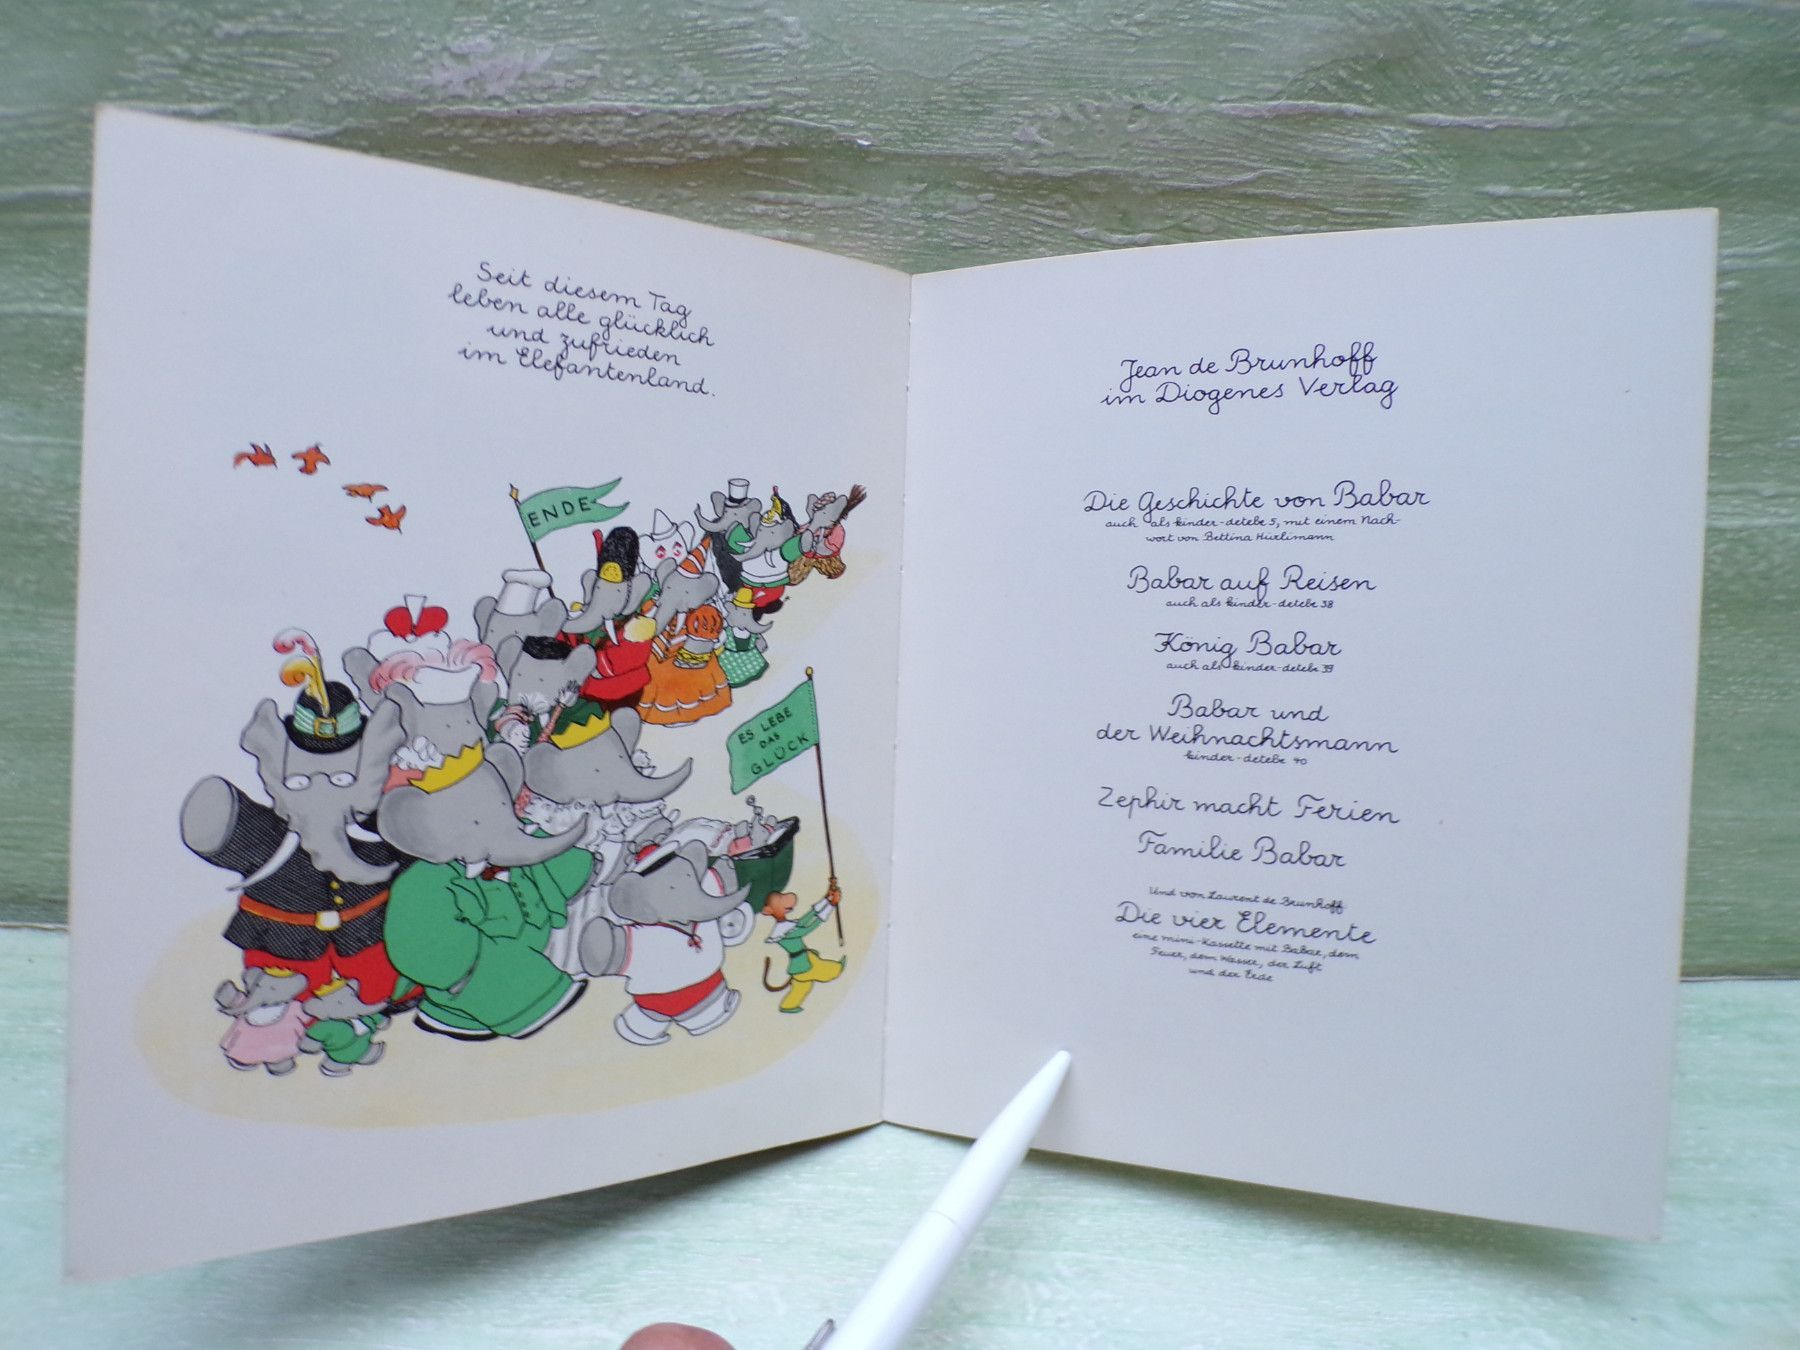 Seit diesem Tag
leben alle glücklich
und zufrieden
im Elefantenland.
ENDE
ES LEBE
DAS
GLÜCK
Jean de Brunhoff
im Diogenes Verlag
Die Geschichte von Babar
auch als kinder-detebe 5, mit einem Nach-
wort von Bettina Hürlimann
Babar auf Reisen
auch als kinder-detebe 38
König Babar
auch als kinder-detebe 39
Babar und
der Weihnachtsmann
kinder-detebe 40
Zephir macht Ferien
Familie Babar
Und von Laurent de Brunhoff
Die vier Elemente
eine mini-Kassette mit Babar, dem
Feuer, dem Wasser, der Luft
und der Erde